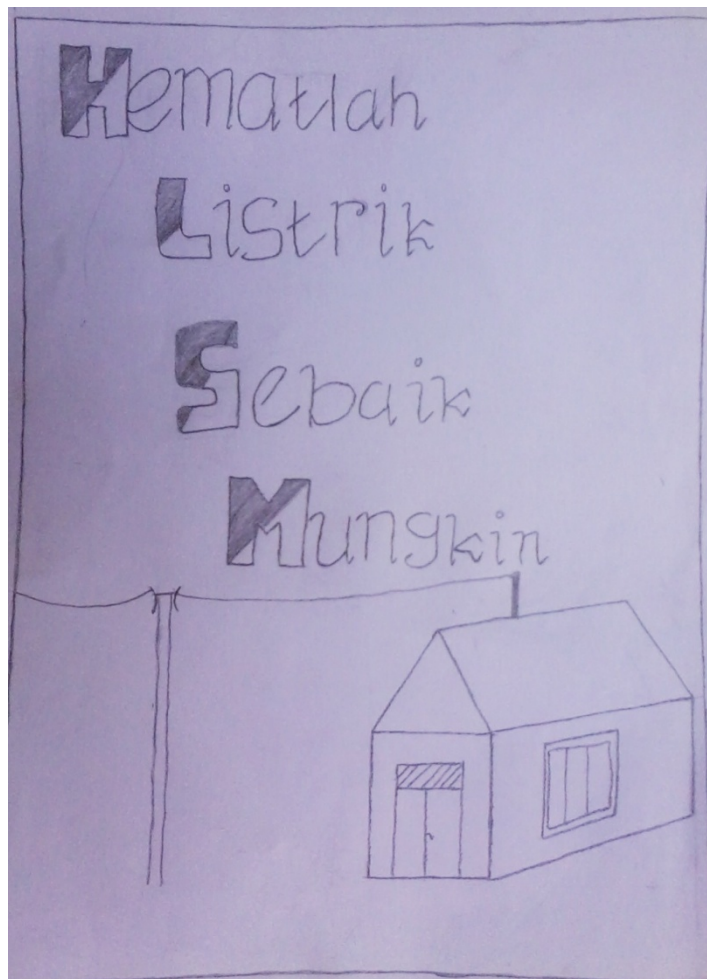 Hematlah
Listrik
Sebaik
Mungkin